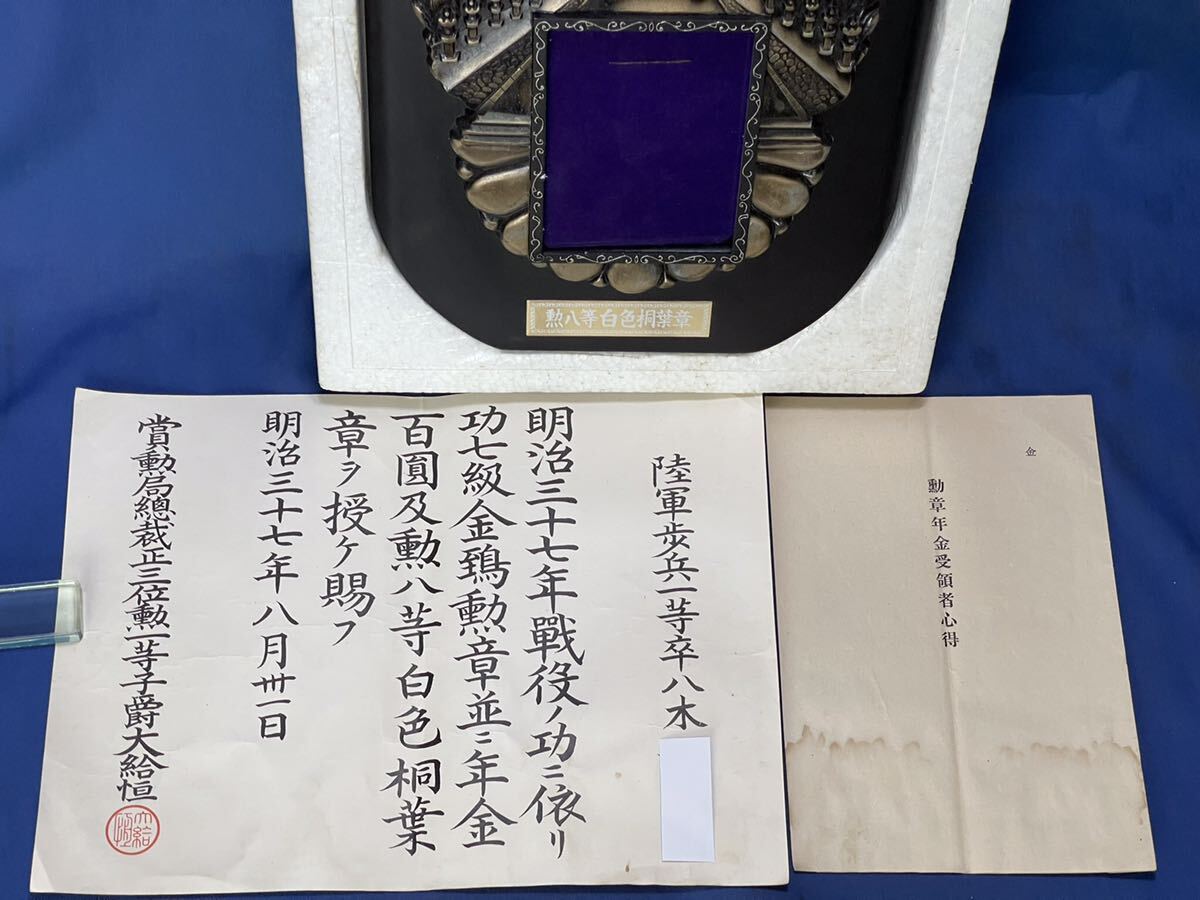 勲八等白色桐葉章
陸軍歩兵一等卒八木
明治三十七年戰役ノ功ニ依リ
功七級金鵄勲章並ニ年金
百圓及勲八等白色桐葉
章ヲ授ケ賜フ
明治三十七年八月卅一日
賞勲局總裁正三位勲一等子爵大給恒
大給恒
金
勳章年金受領者心得